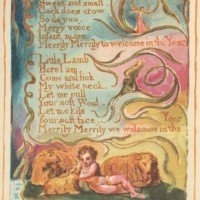 Sweet and small
Cock does crow
So do you
Merry voice
Infant noise
Merrily Merrily to welcome in the Year
Little Lamb
Here I am.
Come and lick
My white neck.
Let me pull
Your soft Wool.
Let me kiss
Your soft face.
Merrily Merrily we welcome in the Year